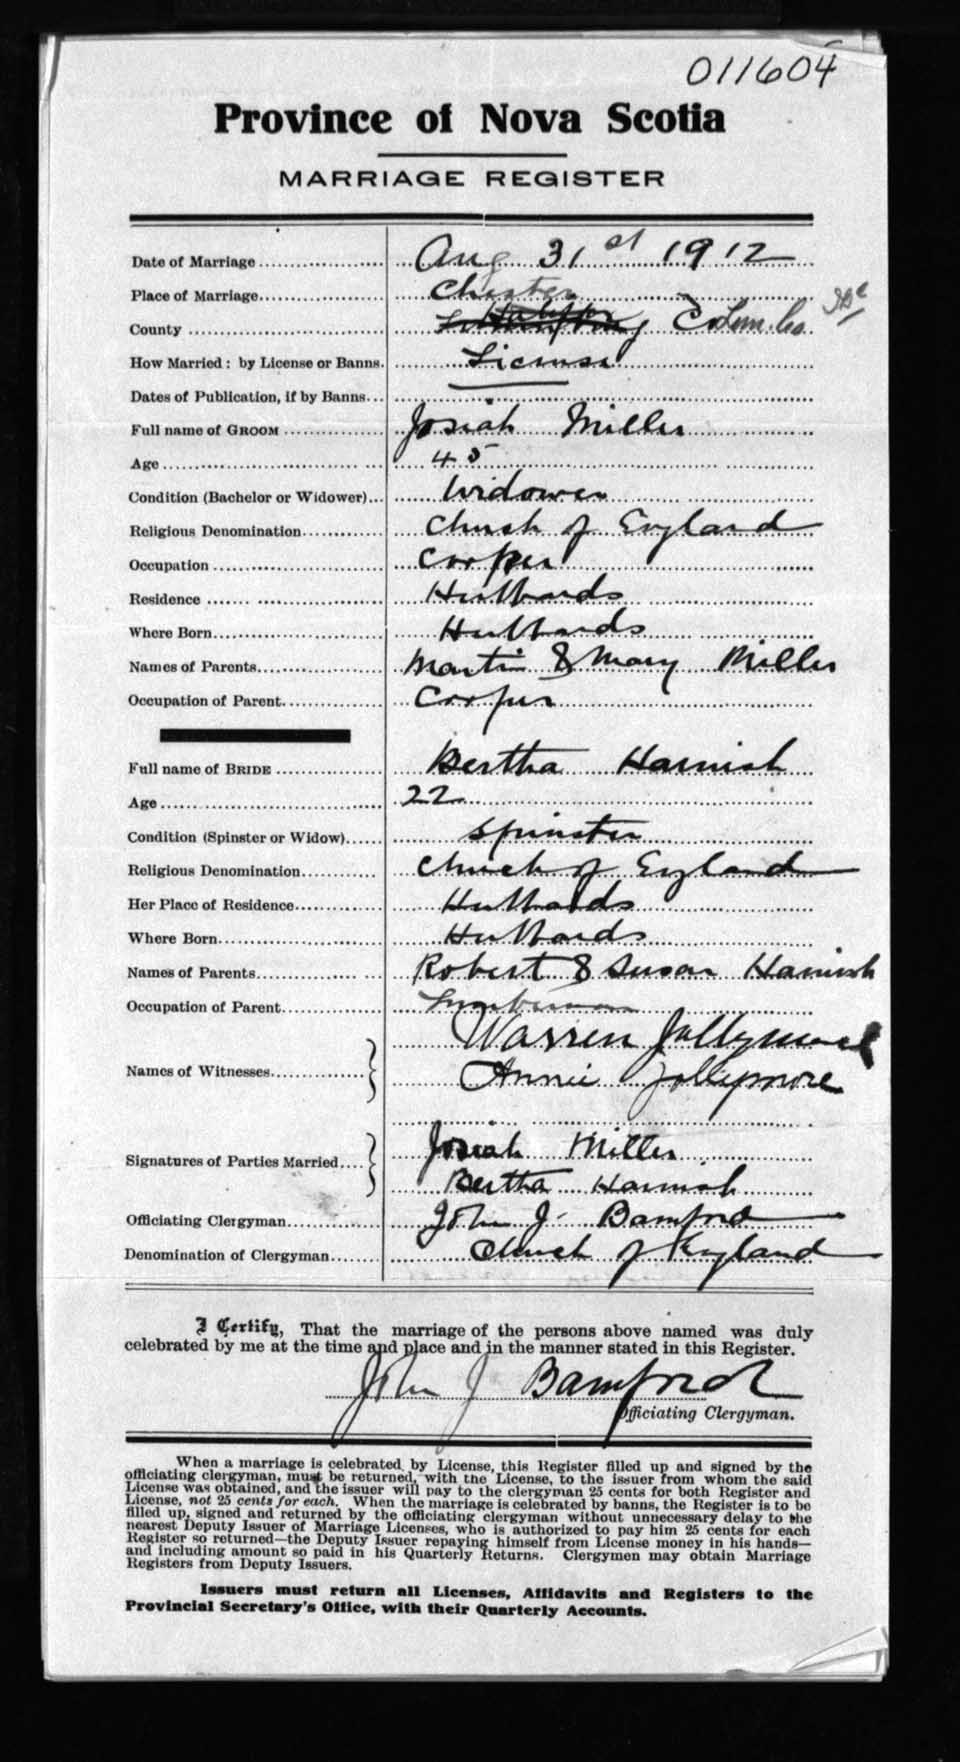 011604
Province of Nova Scotia
MARRIAGE REGISTER
Date of Marriage Aug 31st 1912
Place of Marriage Chester
County Halifax
How Married: by License or Banns. License
Dates of Publication, if by Banns
Full name of GROOM Josiah Miller
Age 45
Condition (Bachelor or Widower) Widower
Religious Denomination Church of England
Occupation Cooper
Residence Hubbards
Where Born Hubbards
Names of Parents Martin & Mary Miller
Occupation of Parent Cooper
Full name of BRIDE Bertha Harnish
Age 22
Condition (Spinster or Widow) Spinster
Religious Denomination Church of England
Her Place of Residence Hubbards
Where Born Hubbards
Names of Parents Robert & Susan Harnish
Occupation of Parent Lumberman
Warren Jollymore
Names of Witnesses
Annie Jollymore
Josiah Miller
Signatures of Parties Married
Bertha Harnish
Officiating Clergyman John J. Bamford
Denomination of Clergyman Church of England
I Certify, That the marriage of the persons above named was duly
celebrated by me at the time and place and in the manner stated in this Register.
John J Bamford
Officiating Clergyman.
When a marriage is celebrated by License, this Register filled up and signed by the
officiating clergyman, must be returned, with the License, to the issuer from whom the said
License was obtained, and the issuer will pay to the clergyman 25 cents for both Register and
License, not 25 cents for each. When the marriage is celebrated by banns, the Register is to be
filled up, signed and returned by the officiating clergyman without unnecessary delay to the
nearest Deputy Issuer of Marriage Licenses, who is authorized to pay him 25 cents for each
Register so returned—the Deputy Issuer repaying himself from License money in his hands—
and including amount so paid in his Quarterly Returns. Clergymen may obtain Marriage
Registers from Deputy Issuers.
Issuers must return all Licenses, Affidavits and Registers to the
Provincial Secretary's Office, with their Quarterly Accounts.